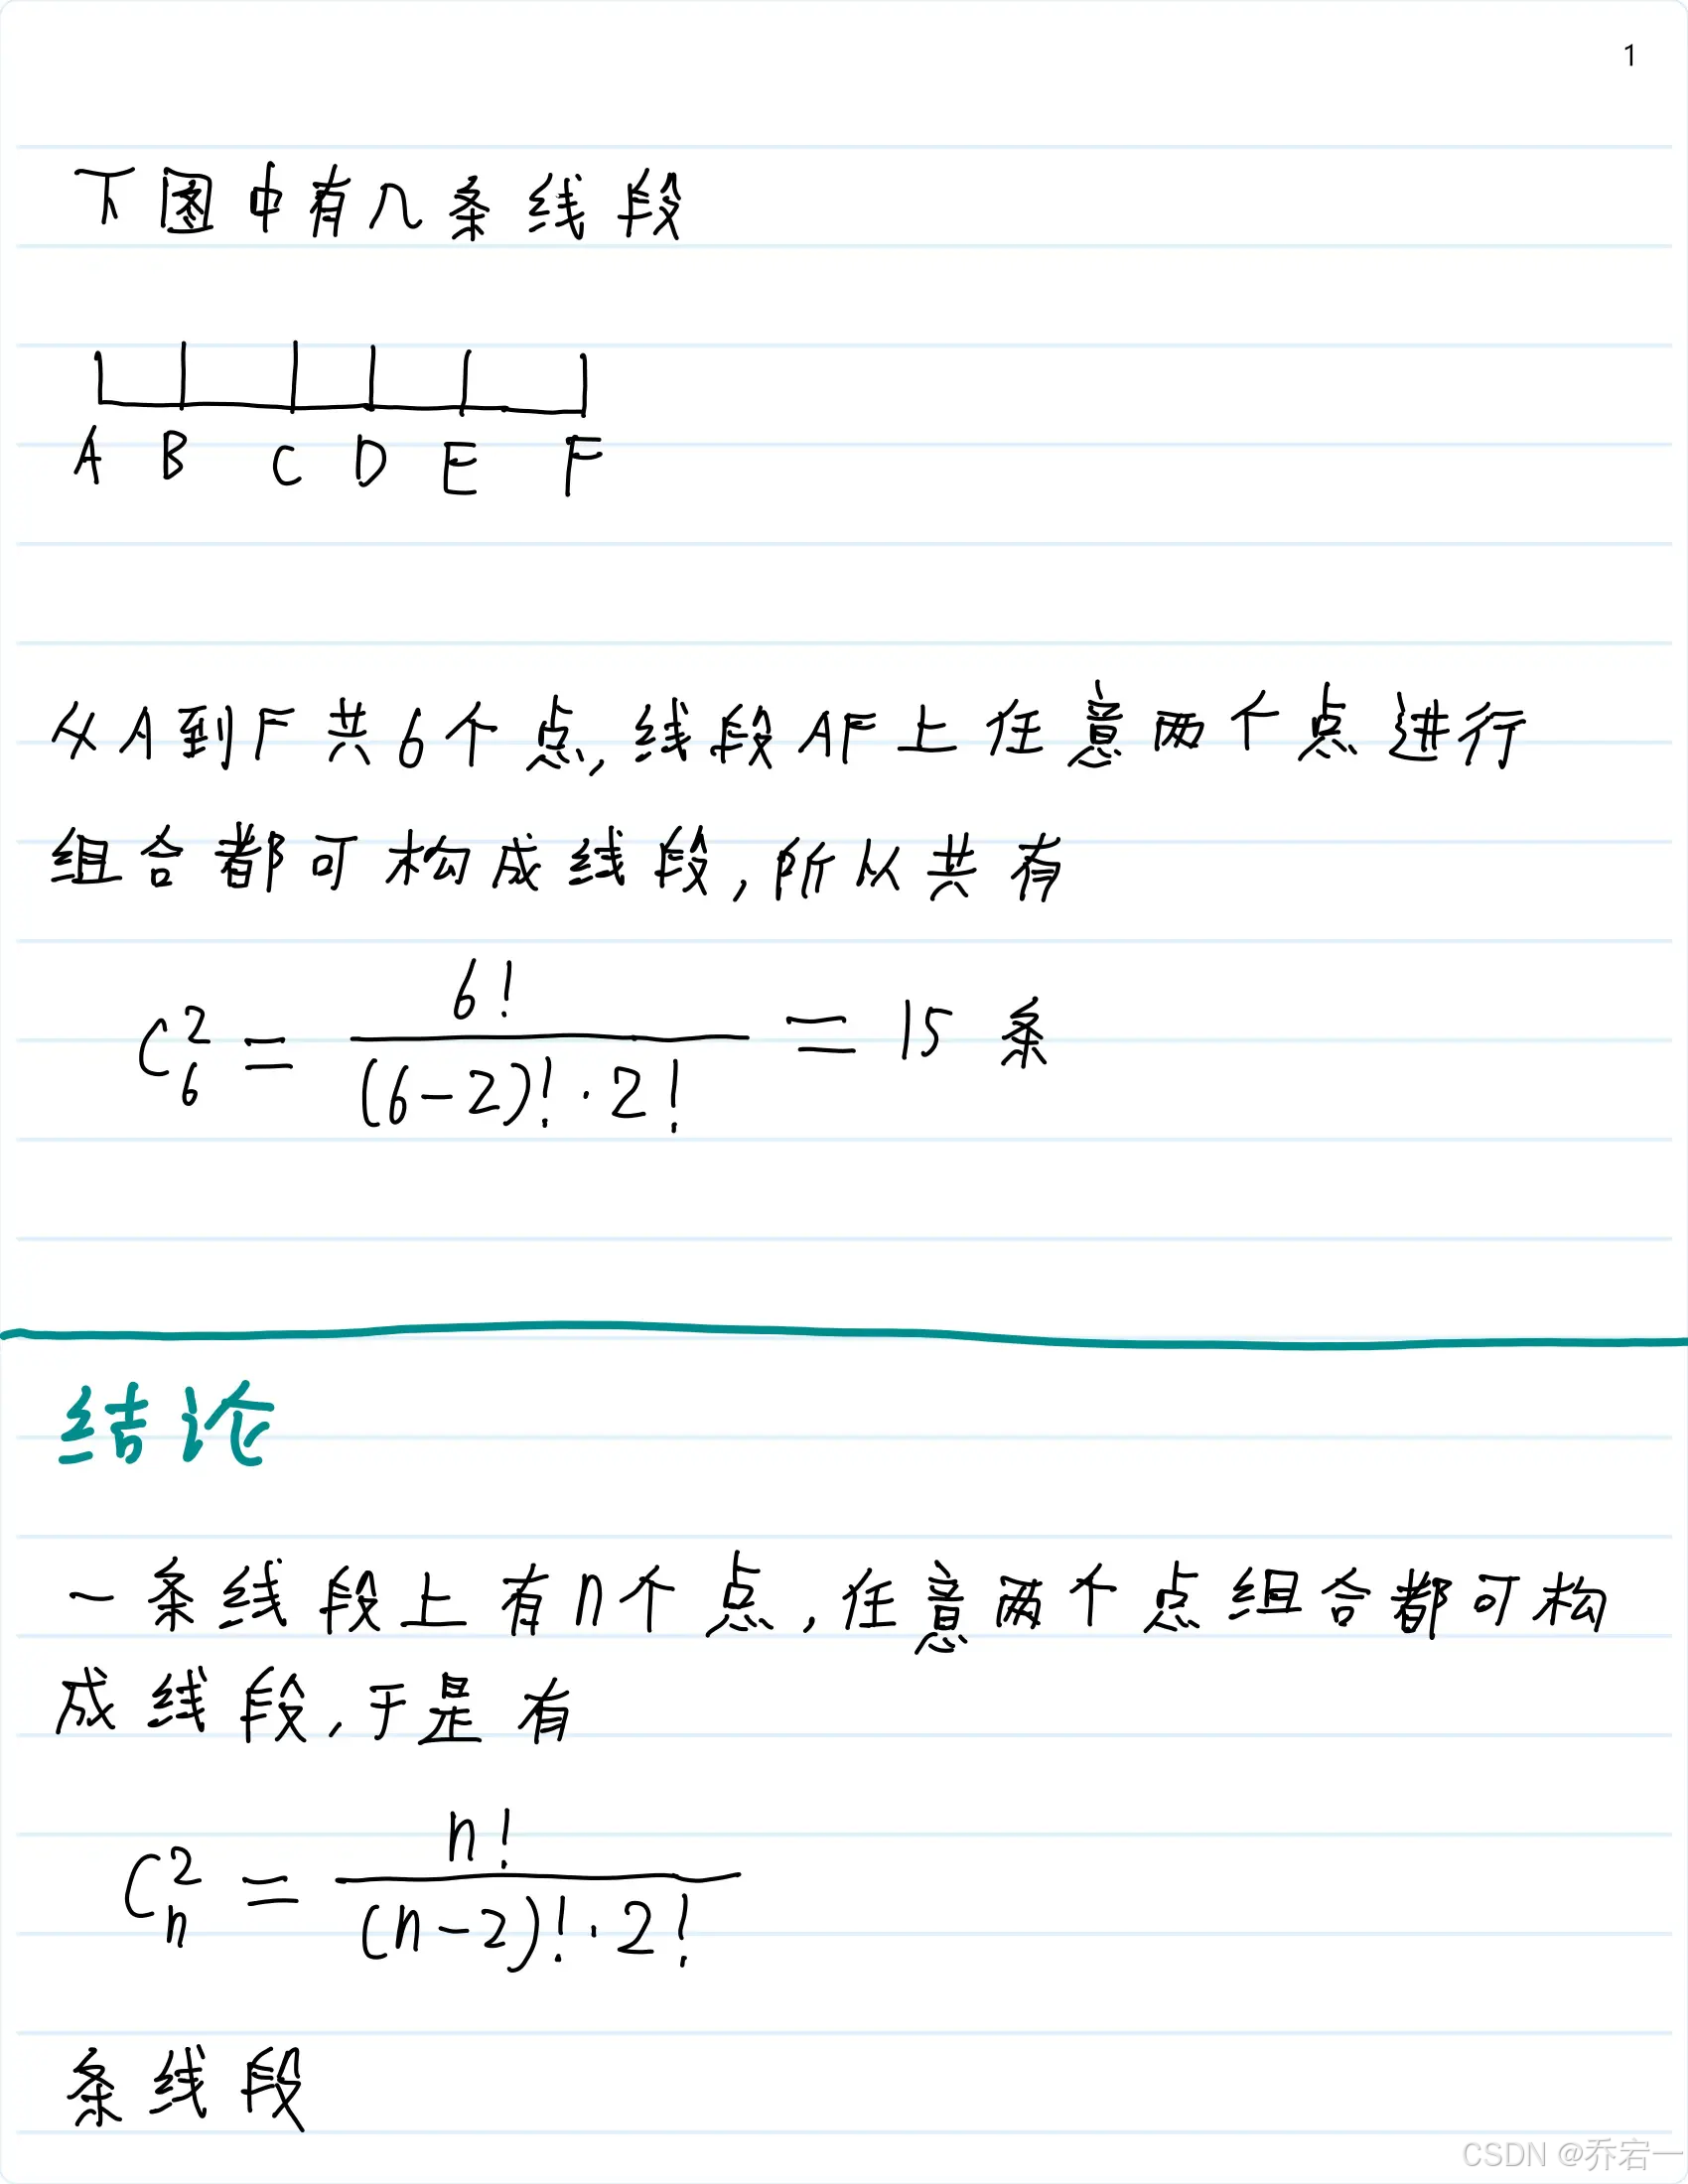 1
下图中有几条线段
A B C D E F
从A到F共6个点,线段AF上任意两个点进行
组合都可构成线段,所以共有
C₆² = 6! / ((6-2)!·2!) = 15 条
结论
一条线段上有n个点,任意两个点组合都可构
成线段,于是有
Cₙ² = n! / ((n-2)!·2!)
条线段
CSDN @乔宕一